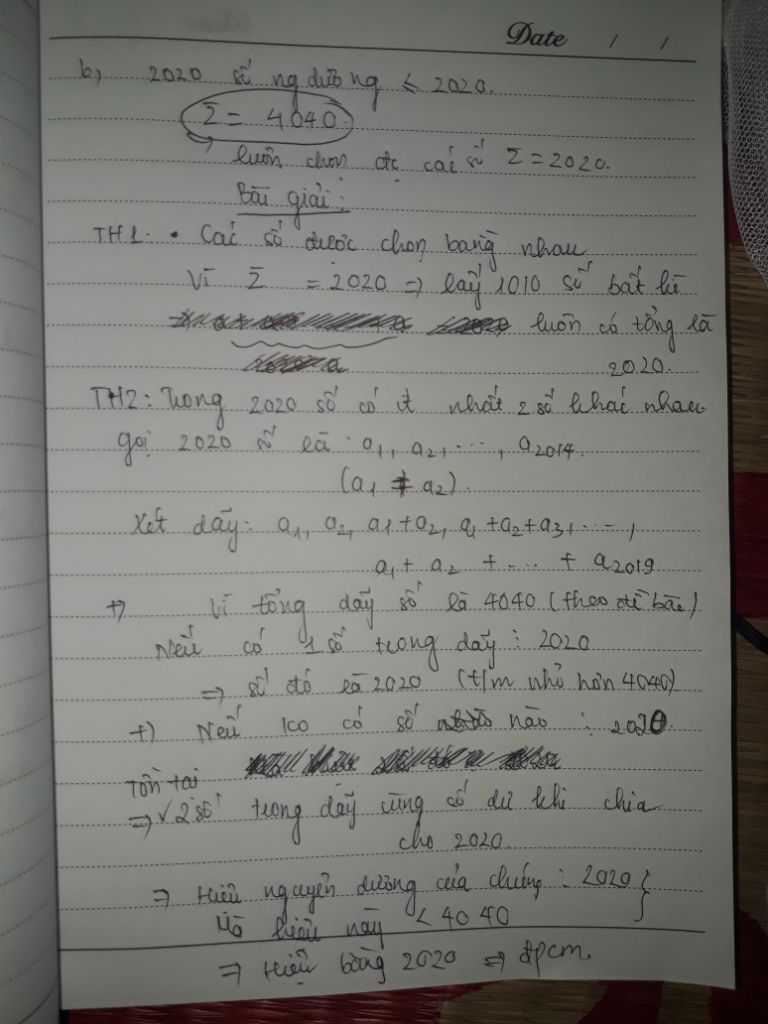 Date / /
b, 2020 số ng dương ≤ 2020.
Σ = 4040
luôn chọn đc các số Σ = 2020.
Bài giải:
TH1: • Các số được chọn bằng nhau
Vì Σ = 2020 => lấy 1010 số bất kì
luôn có tổng là
2020.
TH2: Trong 2020 số có ít nhất 2 số khác nhau
gọi 2020 số là: a1, a2, ..., a2014.
(a1 ≠ a2).
Xét dãy: a1, a2, a1 + a2, a1 + a2 + a3, ...,
a1 + a2 + ... + a2019
+) Vì tổng dãy số là 4040 (theo đề bài)
Nếu có 1 số trong dãy ⋮ 2020
=> số đó là 2020 (t/m nhỏ hơn 4040)
+) Nếu ko có số nào ⋮ 2020.
Tồn tại
=> √ 2 số trong dãy cùng số dư khi chia
cho 2020.
=> Hiệu nguyên dương của chúng ⋮ 2020 }
Mà hiệu này < 4040
=> Hiệu bằng 2020 => đpcm.